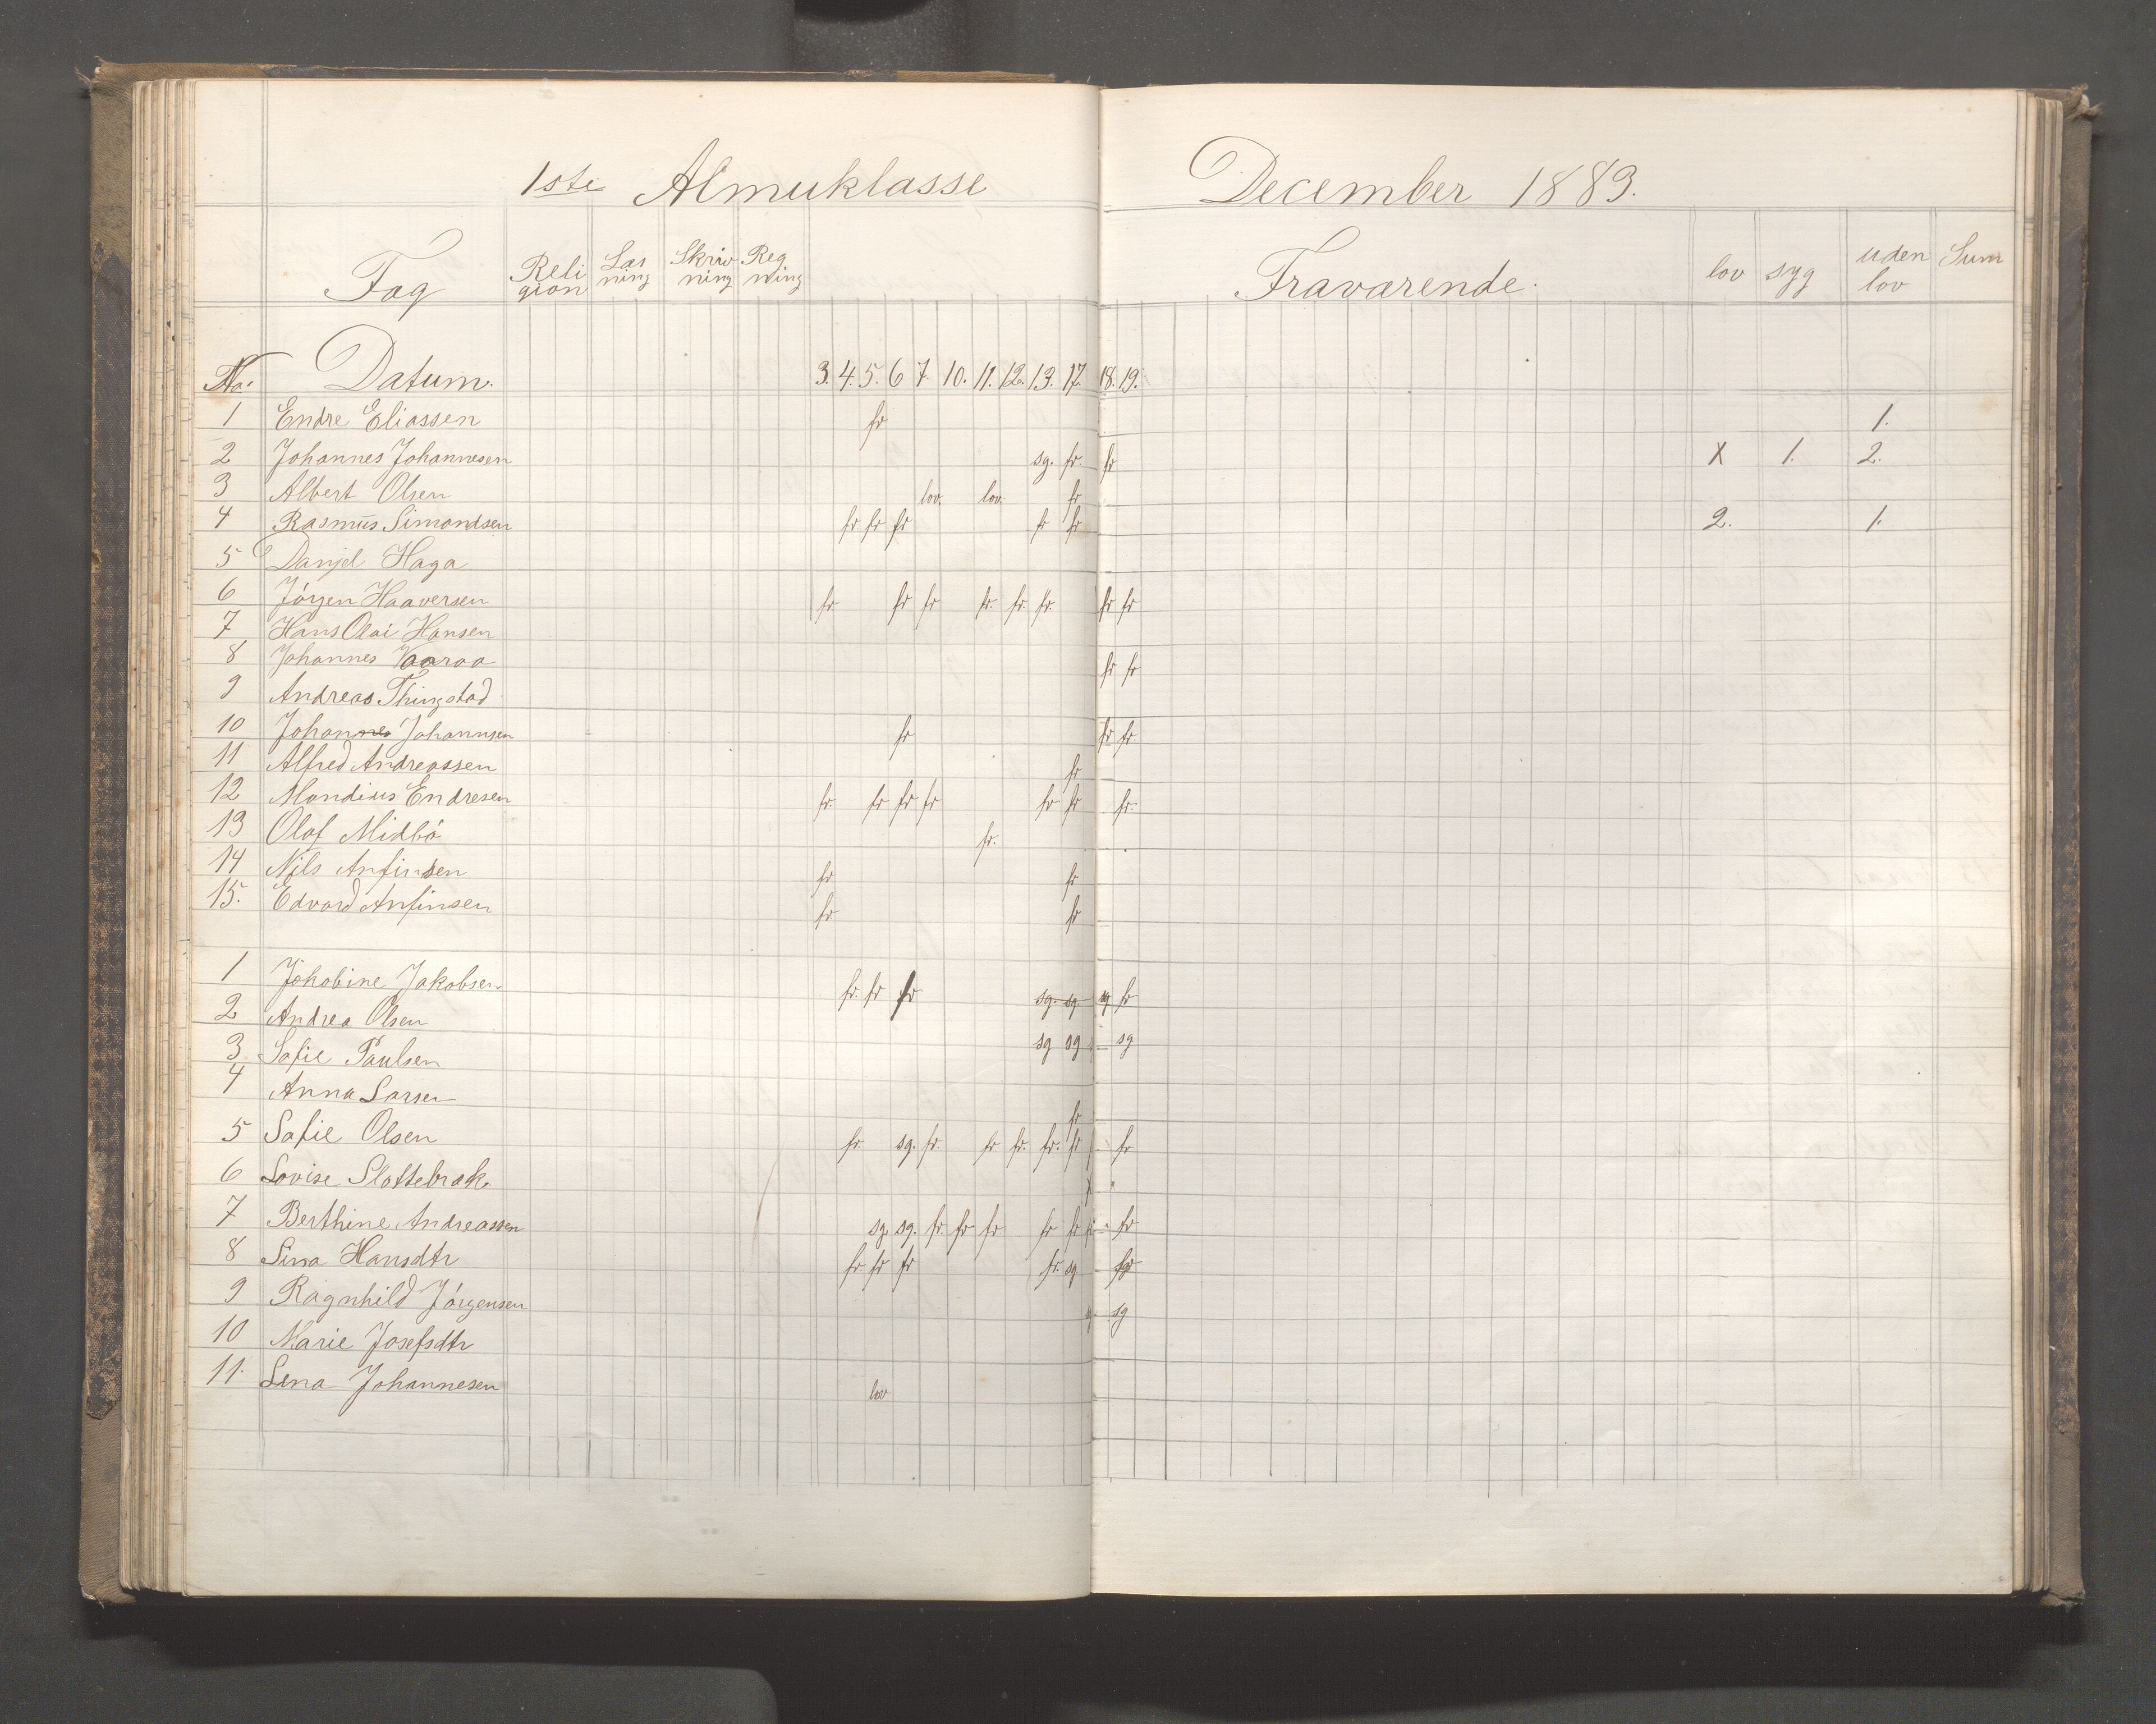 1ste Almuklasse December 1883.
Fag Religion Læsning Skrivning Regning Fraværende. lov syg uden lov Sum
No. Datum. 3. 4. 5. 6 7. 10. 11. 12. 13. 17. 18. 19.
1 Endre Eliassen fr 1.
2 Johannes Johannesen sg. fr. fr X 1. 2.
3 Albert Olsen lov. lov. fr
4 Rasmus Simondsen fr. fr fr fr fr 2. 1.
5 Danjel Haga
6 Jörgen Haaversen fr fr fr fr. fr. fr. fr fr
7 Hans Olai Hansen
8 Johannes Vaaraa fr fr
9 Andreas Thingstad
10 Johannes Johannsen fr fr fr.
11 Alfred Andreassen fr
12 Mandius Endresen fr. fr fr fr fr fr fr.
13 Olaf Midbö fr.
14 Nils Anfindsen fr fr
15. Edvard Anfinsen fr fr
1 Jakobine Jakobsen fr. fr fr sg. sg. sg fr
2 Andrea Olsen
3 Sofie Paulsen sg sg sg
4 Anna Larsen fr
5 Sofie Olsen fr. sg. fr. fr fr. fr. fr fr
6 Lovise Slottebrak.
7 Berthine Andreassen sg. sg. fr. fr fr fr fr fr
8 Sina Hansdtr fr fr fr fr. sg
9 Ragnhild Jörgensen sg
10 Marie Josefsdtr
11. Lena Johannesen lov